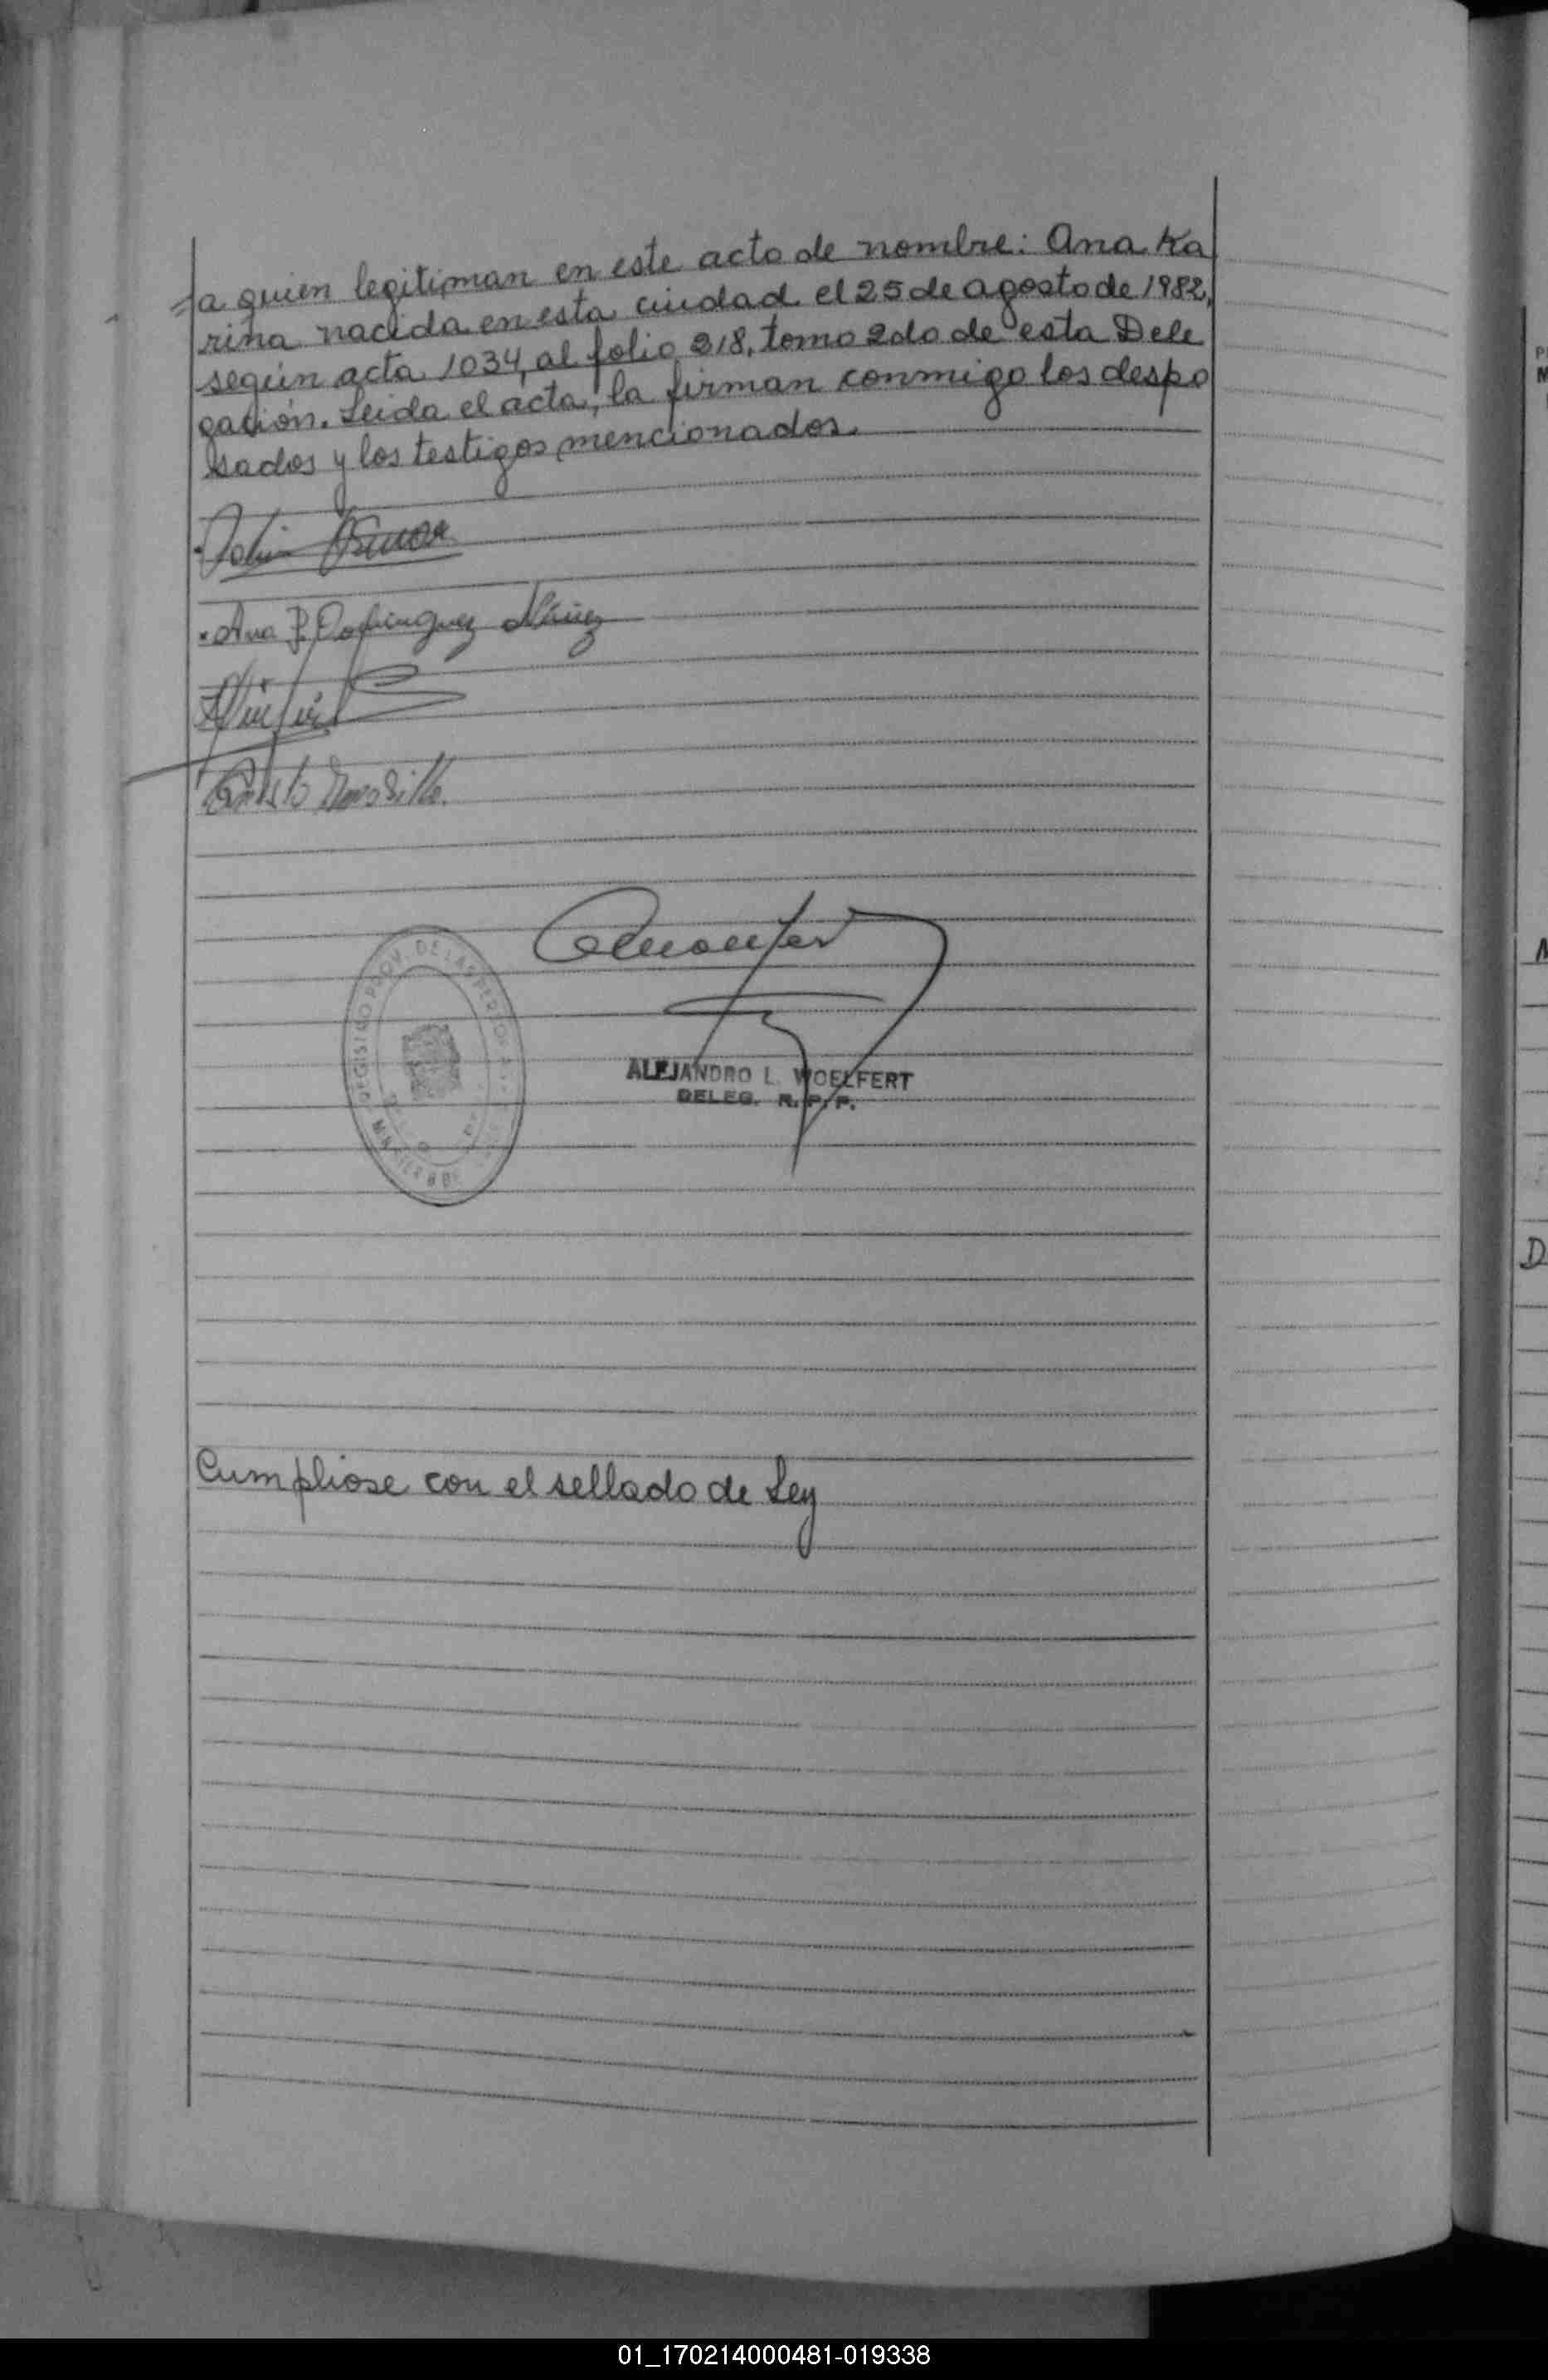 a quien legitiman en este acto de nombre: Ana Ka
rina nacida en esta ciudad el 25 de agosto de 1982,
según acta 1034, al folio 218, tomo 2do de esta Dele
gación. Leida el acta, la firman conmigo los despo
sados y los testigos mencionados.
Ana P. Dominguez
ALEJANDRO L. WOELFERT
DELEG. R. P. P.
REGISTRO PROV. DE LAS PER
Cumpliose con el sellado de Ley
D
01_170214000481-019338